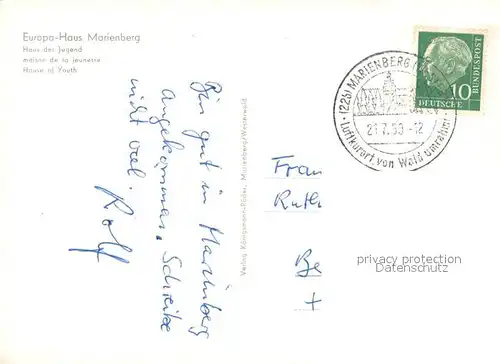 Europa-Haus Marienberg
Haus der Jugend
maison de la jeunesse
House of Youth
Bin gut in Marienberg
angekommen. Schreibe
nicht viel. Rolf
Verlag Königsmann-Röder, Marienberg/Westerwald
(22b) MARIENBERG
21.7.59-12
Luftkurort, von Wald umrahmt
10
DEUTSCHE
BUNDESPOST
Frau
Ruth
Be
privacy protection
Datenschutz